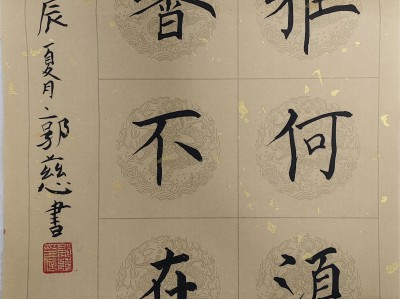 雅何須
香不在
辰夏月郭慈書